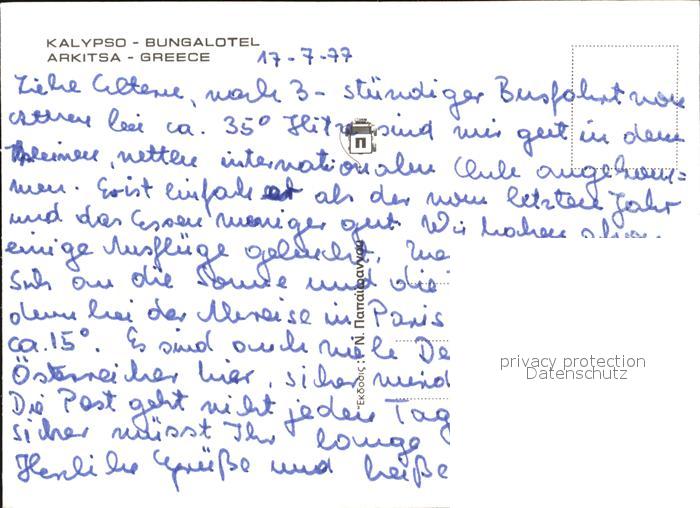 KALYPSO - BUNGALOTEL
ARKITSA - GREECE 17-7-77
Liebe Eltern, nach 3-stündiger Busfahrt von
Athen bei ca. 35° Hitze sind wir gut in dem
kleinen, netten internationalen Club angekom=
men. Es ist einfacher als der vom letzten Jahr
und das Essen weniger gut. Wir haben
einige Ausflüge gebucht,
sich an die Sonne und die
denn bei der Abreise in Paris
ca. 15°. Es sind auch viele De
Österreicher hier, sicher wird
Die Post geht nicht jeden Tag
sicher müsst Ihr lange
Herzliche Grüße und heiße
Π
Έκδοσις: Ν. Παπαϊωάννου
privacy protection
Datenschutz